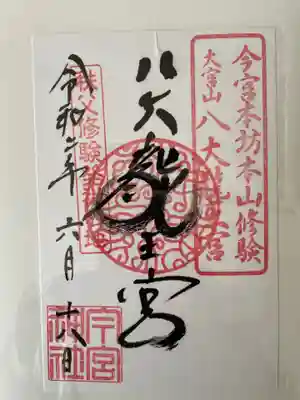 今宮本坊本山修験
大宮山 八大龍王宮
八大龍王宮
秩父修験
令和二年 六月 十六日
今宮神社